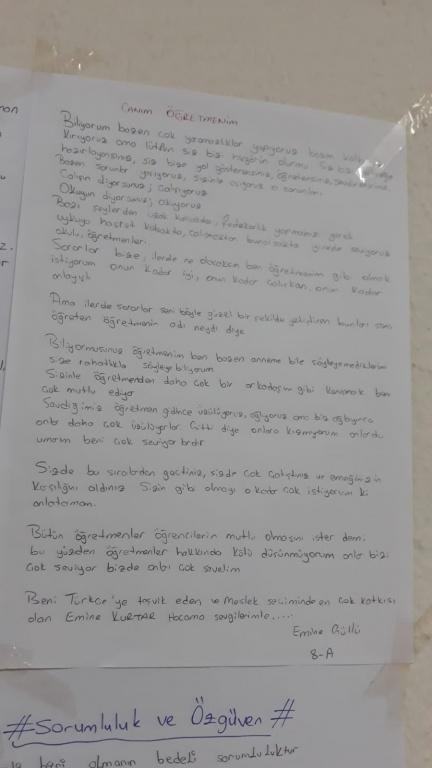 CANIM ÖĞRETMENİM
Biliyorum bazen çok yaramazlıklar yapıyoruz bazen kalbinizi
kırıyoruz ama lütfen siz biz
hazırlayansınız, siz bize yol gösterensiniz, öğretensiniz,
Bazen sorunlar yaşıyoruz, sizinle aşıyoruz o sorunları.
Çalışın diyorsunuz; çalışıyoruz
Okuyun diyorsunuz; okuyoruz
Bazı şeylerden uzak kalsakta, fedakarlık yapmamız gerek
uykuya hasret kalsakta, çalışmaktan bunalsakta yinede seviyoruz
okulu, öğretmenleri.
Sorarlar bize, ilerde ne olacaksın ben öğretmenim gibi olmak
istiyorum onun kadar iyi, onun kadar çalışkan, onun kadar
anlayışlı
Ama ilerde sorarlar seni böyle güzel bir şekilde yetiştiren bunları sana
öğreten öğretmenin adı neydi diye
Biliyormusunuz öğretmenim ben bazen anneme bile söyleyemediklerimi
size rahatlıkla söyleyebiliyorum
Sizinle öğretmenden daha çok bir arkadaşım gibi konuşmak beni
çok mutlu ediyor
Sevdiğimiz öğretmen gidince üzülüyoruz, ağlıyoruz ama biz ağlayınca
onlar daha çok üzülüyorlar. Gitti diye onlara kızmıyorum onlarda
umarım beni çok seviyordur
Sizde bu sıralardan geçtiniz, sizde çok çalıştınız ve emeğinizin
karşılığını aldınız Sizin gibi olmayı o kadar çok istiyorum ki
anlatamam.
Bütün öğretmenler öğrencilerin mutlu olmasını ister demi
bu yüzden öğretmenler hakkında kötü düşünmüyorum onlar bizi
çok seviyor bizde onları çok sevelim
Beni Türkçe'ye teşvik eden ve Meslek seçiminde en çok katkısı
olan Emine KURTAR Hocama sevgilerimle....
Emine Güllü
8-A
#Sorumluluk ve Özgüven#
olmanın bedeli sorumluluktur